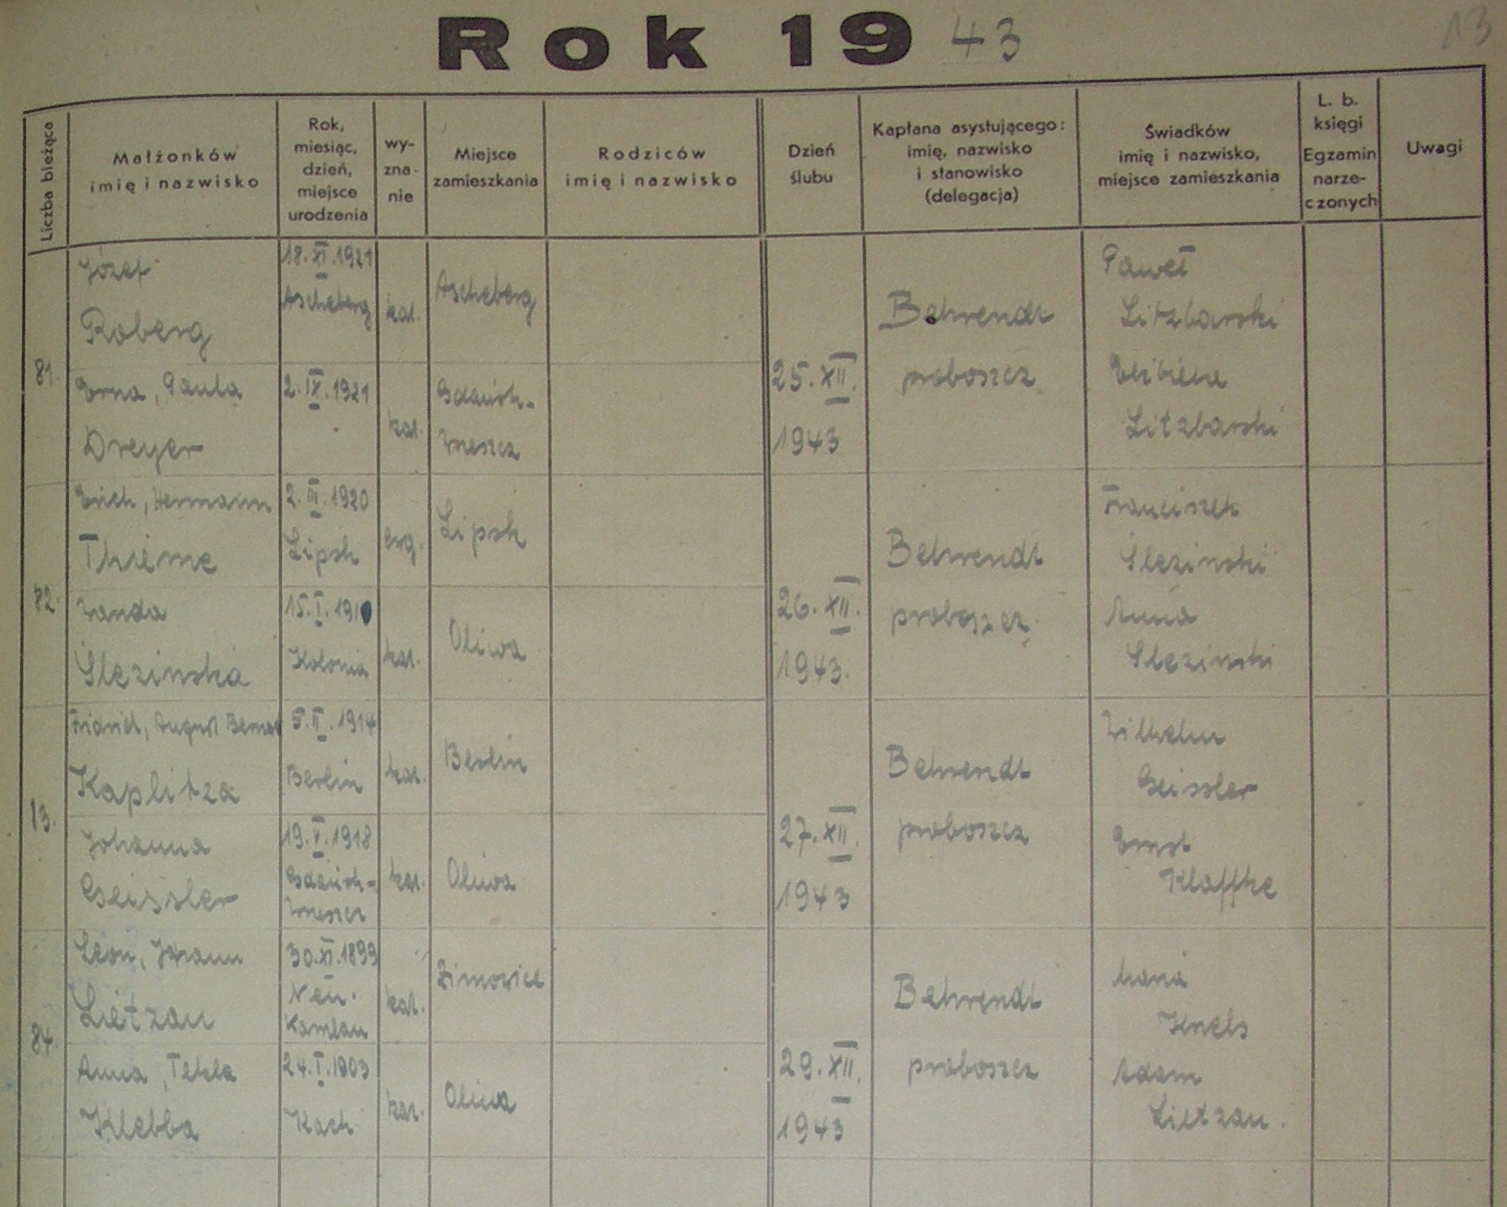 Rok 1943
13
Liczba bieżąca
Małżonków
imię i nazwisko
Rok,
miesiąc,
dzień,
miejsce
urodzenia
wy-
zna-
nie
Miejsce
zamieszkania
Rodziców
imię i nazwisko
Dzień
ślubu
Kapłana asystującego:
imię, nazwisko
i stanowisko
(delegacja)
Świadków
imię i nazwisko,
miejsce zamieszkania
L. b.
księgi
Egzamin
narze-
czonych
Uwagi
81.
Józef
Roberg
18.XI.1921
Ascheberg
kat.
Ascheberg
Erna, Paula
Dreyer
2.IX.1921
kat.
Gdańsk-
Wrzeszcz
25.XII.
1943
Behrendt
proboszcz
Paweł
Litzbarski
Elżbieta
Litzbarski
82.
Erich, Hermann
Thieme
2.III.1920
Lipsk
Lipsk
Wanda
Slezinska
15.I.191
Kolonia
kat.
Oliwa
26.XII.
1943.
Behrendt
proboszcz
Franciszek
Slezinski
Anna
Slezinski
13.
August
Kaplitza
5.II.1914
Berlin
kat.
Berlin
Johanna
Geissler
19.V.1918
Gdańsk-
Wrzeszcz
kat.
Oliwa
27.XII.
1943
Behrendt
proboszcz
Wilhelm
Geissler
Ernst
Klaffke
84.
Leon, Johann
Lietzau
30.XI.1899
Neu-
Kamlau
kat.
Anna, Tekla
Klebba
24.I.1903
Kack
kat.
Oliwa
29.XII.
1943
Behrendt
proboszcz
Maria
Knels
Adam
Lietzau.